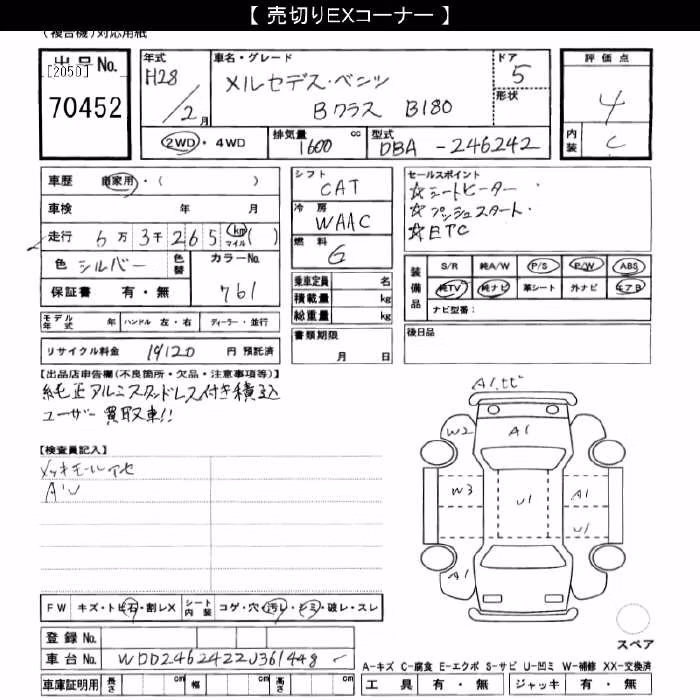 【 売切りEXコーナー 】
(複合機)対応用紙
出品No.
[2050]
70452
年式
H28
/2月
車名・グレード
メルセデス・ベンツ
Bクラス B180
ドア
5
形状
評価点
4
内装
C
2WD・4WD
排気量
1600 cc
型式
DBA-246242
車歴 自家用・( )
車検 年 月
走行 6万3千265 (km マイル)( )
色 シルバー
色替
カラーNo.
761
保証書 有・無
シフト
CAT
冷房
WAAC
燃料
G
乗車定員 名
積載量 kg
総重量 kg
セールスポイント
☆シートヒーター・
☆プッシュスタート・
☆ETC
装備品
S/R 純A/W P/S P/W ABS
純TV 純ナビ 革シート 外ナビ エアB
ナビ型番:
モデル年式 年 ハンドル 左・右 ディーラー・並行
リサイクル料金 14120 円 預託済
書類期限
月 日
後日品
【出品店申告欄(不良箇所・欠品・注意事項等)】
純正アルミスタッドレス付き積込
ユーザー買取車!!
【検査員記入】
メッキモールアセ
A・U
A1.ヒビ
W2
A1
W3
U1
A1
U1
A1
FW キズ・トビ石・割レX
シート内装 コゲ・穴・汚レ・シミ・破レ・スレ
登録No.
車台No. WDD2462422J361448
車庫証明用 長さ cm 幅 cm 高さ cm
スペア
A-キズ C-腐食 E-エクボ S-サビ U-凹ミ W-補修 XX-交換済
工具 有・無 ジャッキ 有・無